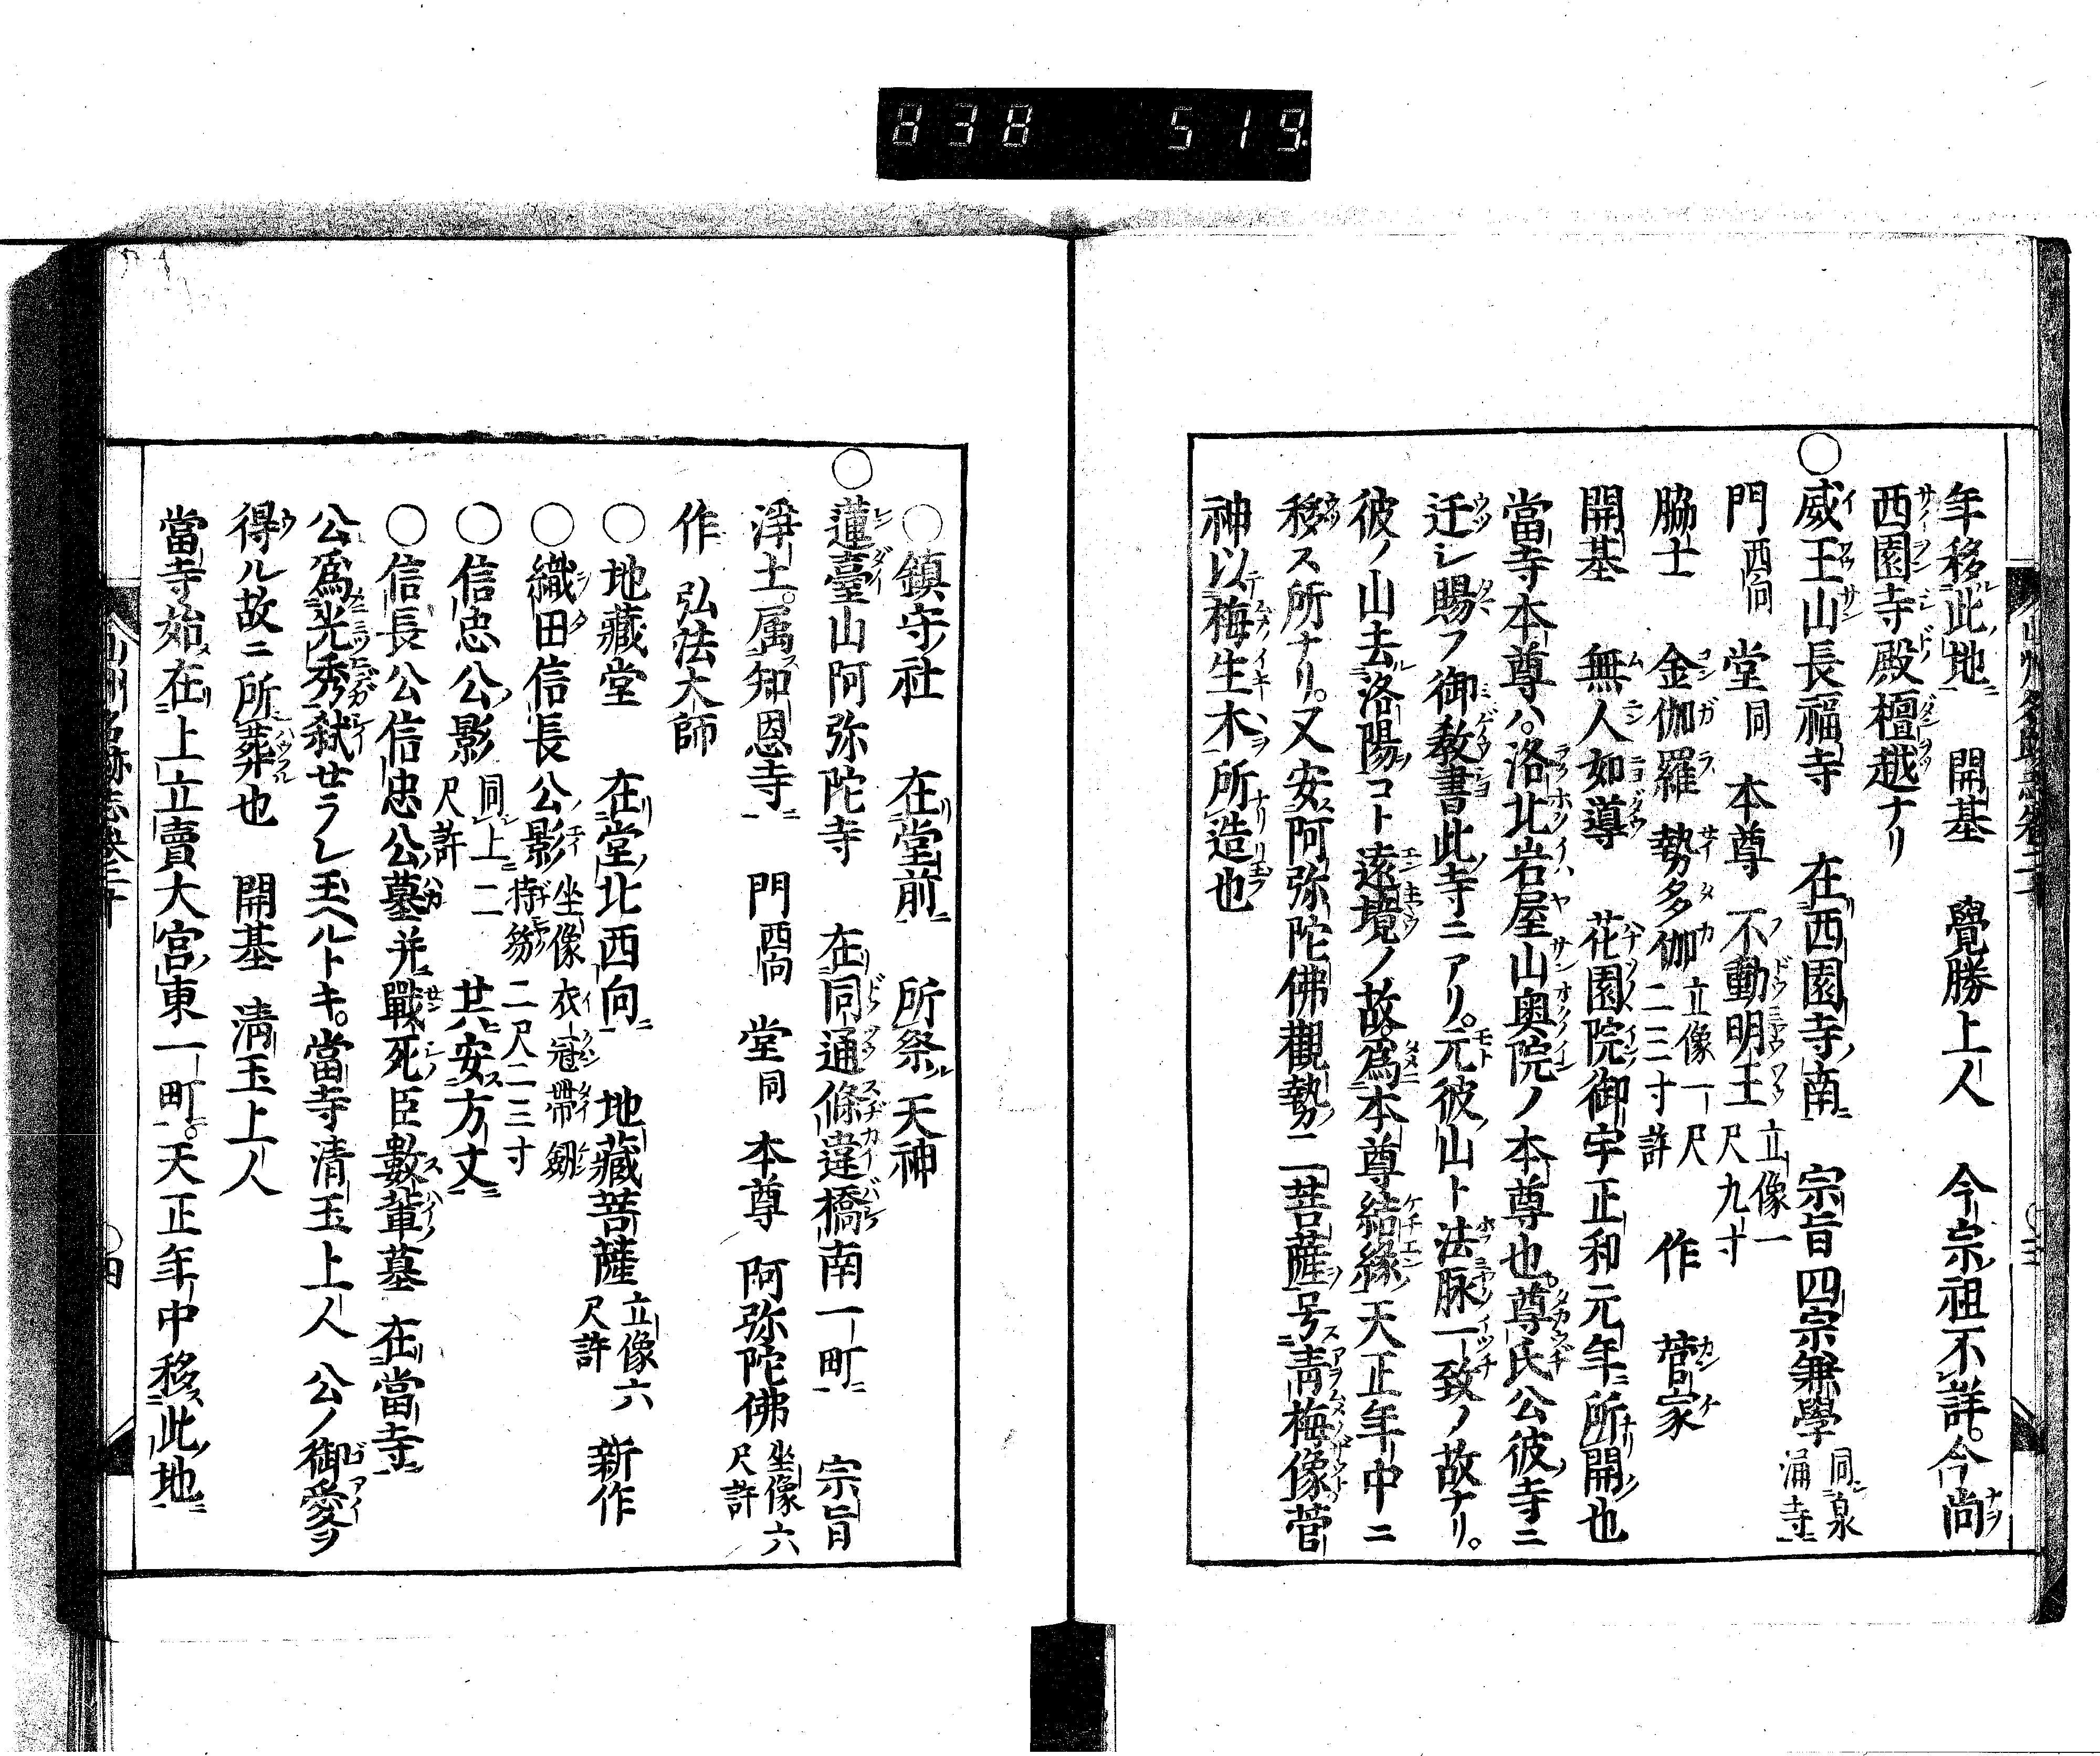 838 519
年移此地ニ 開基 覺勝上人 今宗祖不詳。今尚
西園寺殿檀越ナリ
○威王山長福寺 在西園寺ノ南ニ 宗旨四宗兼學 同泉涌寺ニ
門 西向 堂 同 本尊 不動明王 立像一尺九寸
脇士 金伽羅 勢多伽 立像一尺二三寸許 作 菅家
開基 無人如導 花園院御宇正和元年ニ所開也
當寺本尊ハ。洛北岩屋山奥院ノ本尊也。尊氏公彼寺ニ
迁シ賜フ御教書此寺ニアリ。元彼山ト法脉一致ノ故ナリ。
彼ノ山去洛陽コト遠境ノ故。為本尊結縁天正年中ニ
移ス所ナリ。又安阿弥陀佛觀勢ノ二菩薩号青梅像菅
神以梅生木ヲ所造也
○鎮守社 在堂前ニ 所祭天神
○蓮臺山阿弥陀寺 在同通條違橋南一町ニ 宗旨
淨土。属知恩寺ニ 門 西向 堂 同 本尊 阿弥陀佛 坐像六尺許
作 弘法大師
○地藏堂 在堂ノ北西向ニ 地藏菩薩 立像六尺許 新作
○織田信長公ノ影 坐像衣冠帶劔持笏二尺二三寸
○信忠公ノ影 同上ニ二尺許 共ニ安ス方丈ニ
○信長公信忠公ノ墓并戰死ノ臣數輩ノ墓 在當寺ニ
公為光秀弑せラレ玉ヘルトキ。當寺清玉上人 公ノ御愛ヲ
得ル故ニ所葬也 開基 清玉上人
當寺始ハ在上立賣大宮ノ東一町ニ。天正年中移此地ニ
山州名跡志卷二十